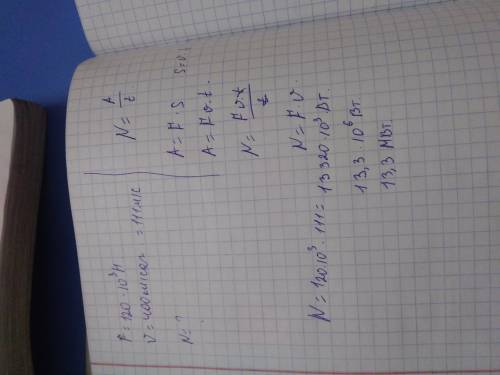 F = 120 · 10³ Н
V = 400 м/сек = 111 м/с
N = ?
N = A/t
A = F · S
A = F υ · t.
N = F υ · t / t
N = F · υ.
N = 120 · 10³ · 111 = 13320 · 10³ Вт
13,3 · 10⁶ Вт.
13,3 МВт.